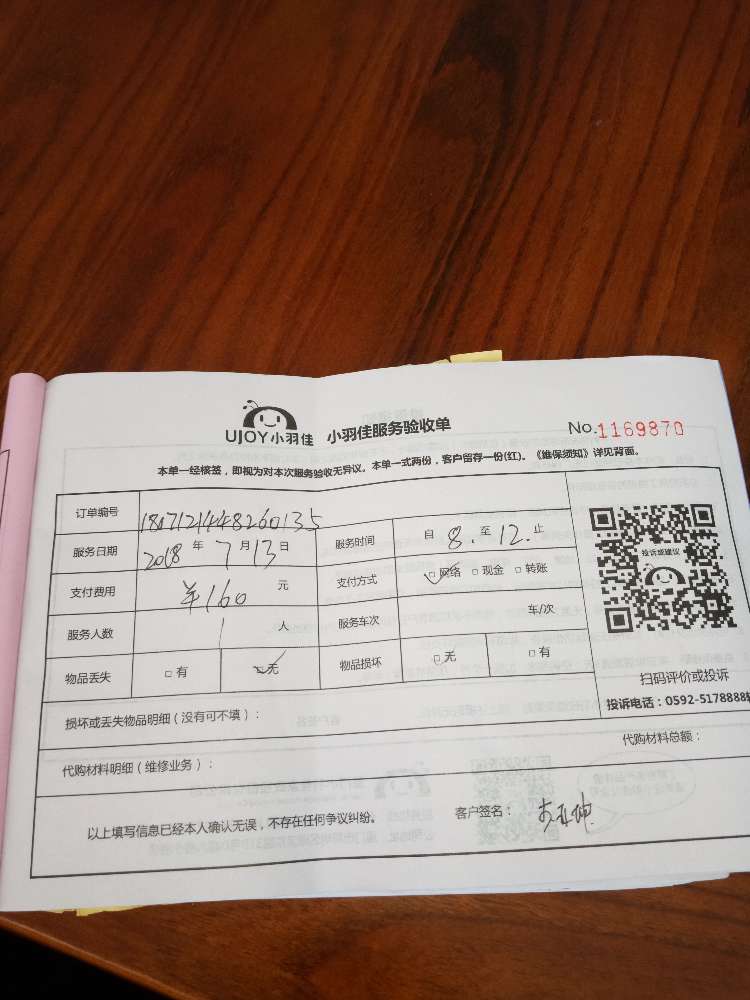 UJOY小羽佳 小羽佳服务验收单 No.1169870
本单一经核签，即视为对本次服务验收无异议。本单一式两份，客户留存一份(红)。《维保须知》详见背面。
订单编号 1807121448260135
服务日期 2018 年 7 月 13 日 服务时间 自 8. 至 12. 止
支付费用 ¥160 元 支付方式 □网络 □现金 □转账
服务人数 1 人 服务车次 车/次
物品丢失 □有 □无 物品损坏 □无 □有
投诉或建议
扫码评价或投诉
投诉电话：0592-5178888
损坏或丢失物品明细（没有可不填）：
代购材料明细（维修业务）： 代购材料总额：
以上填写信息已经本人确认无误，不存在任何争议纠纷。 客户签名：